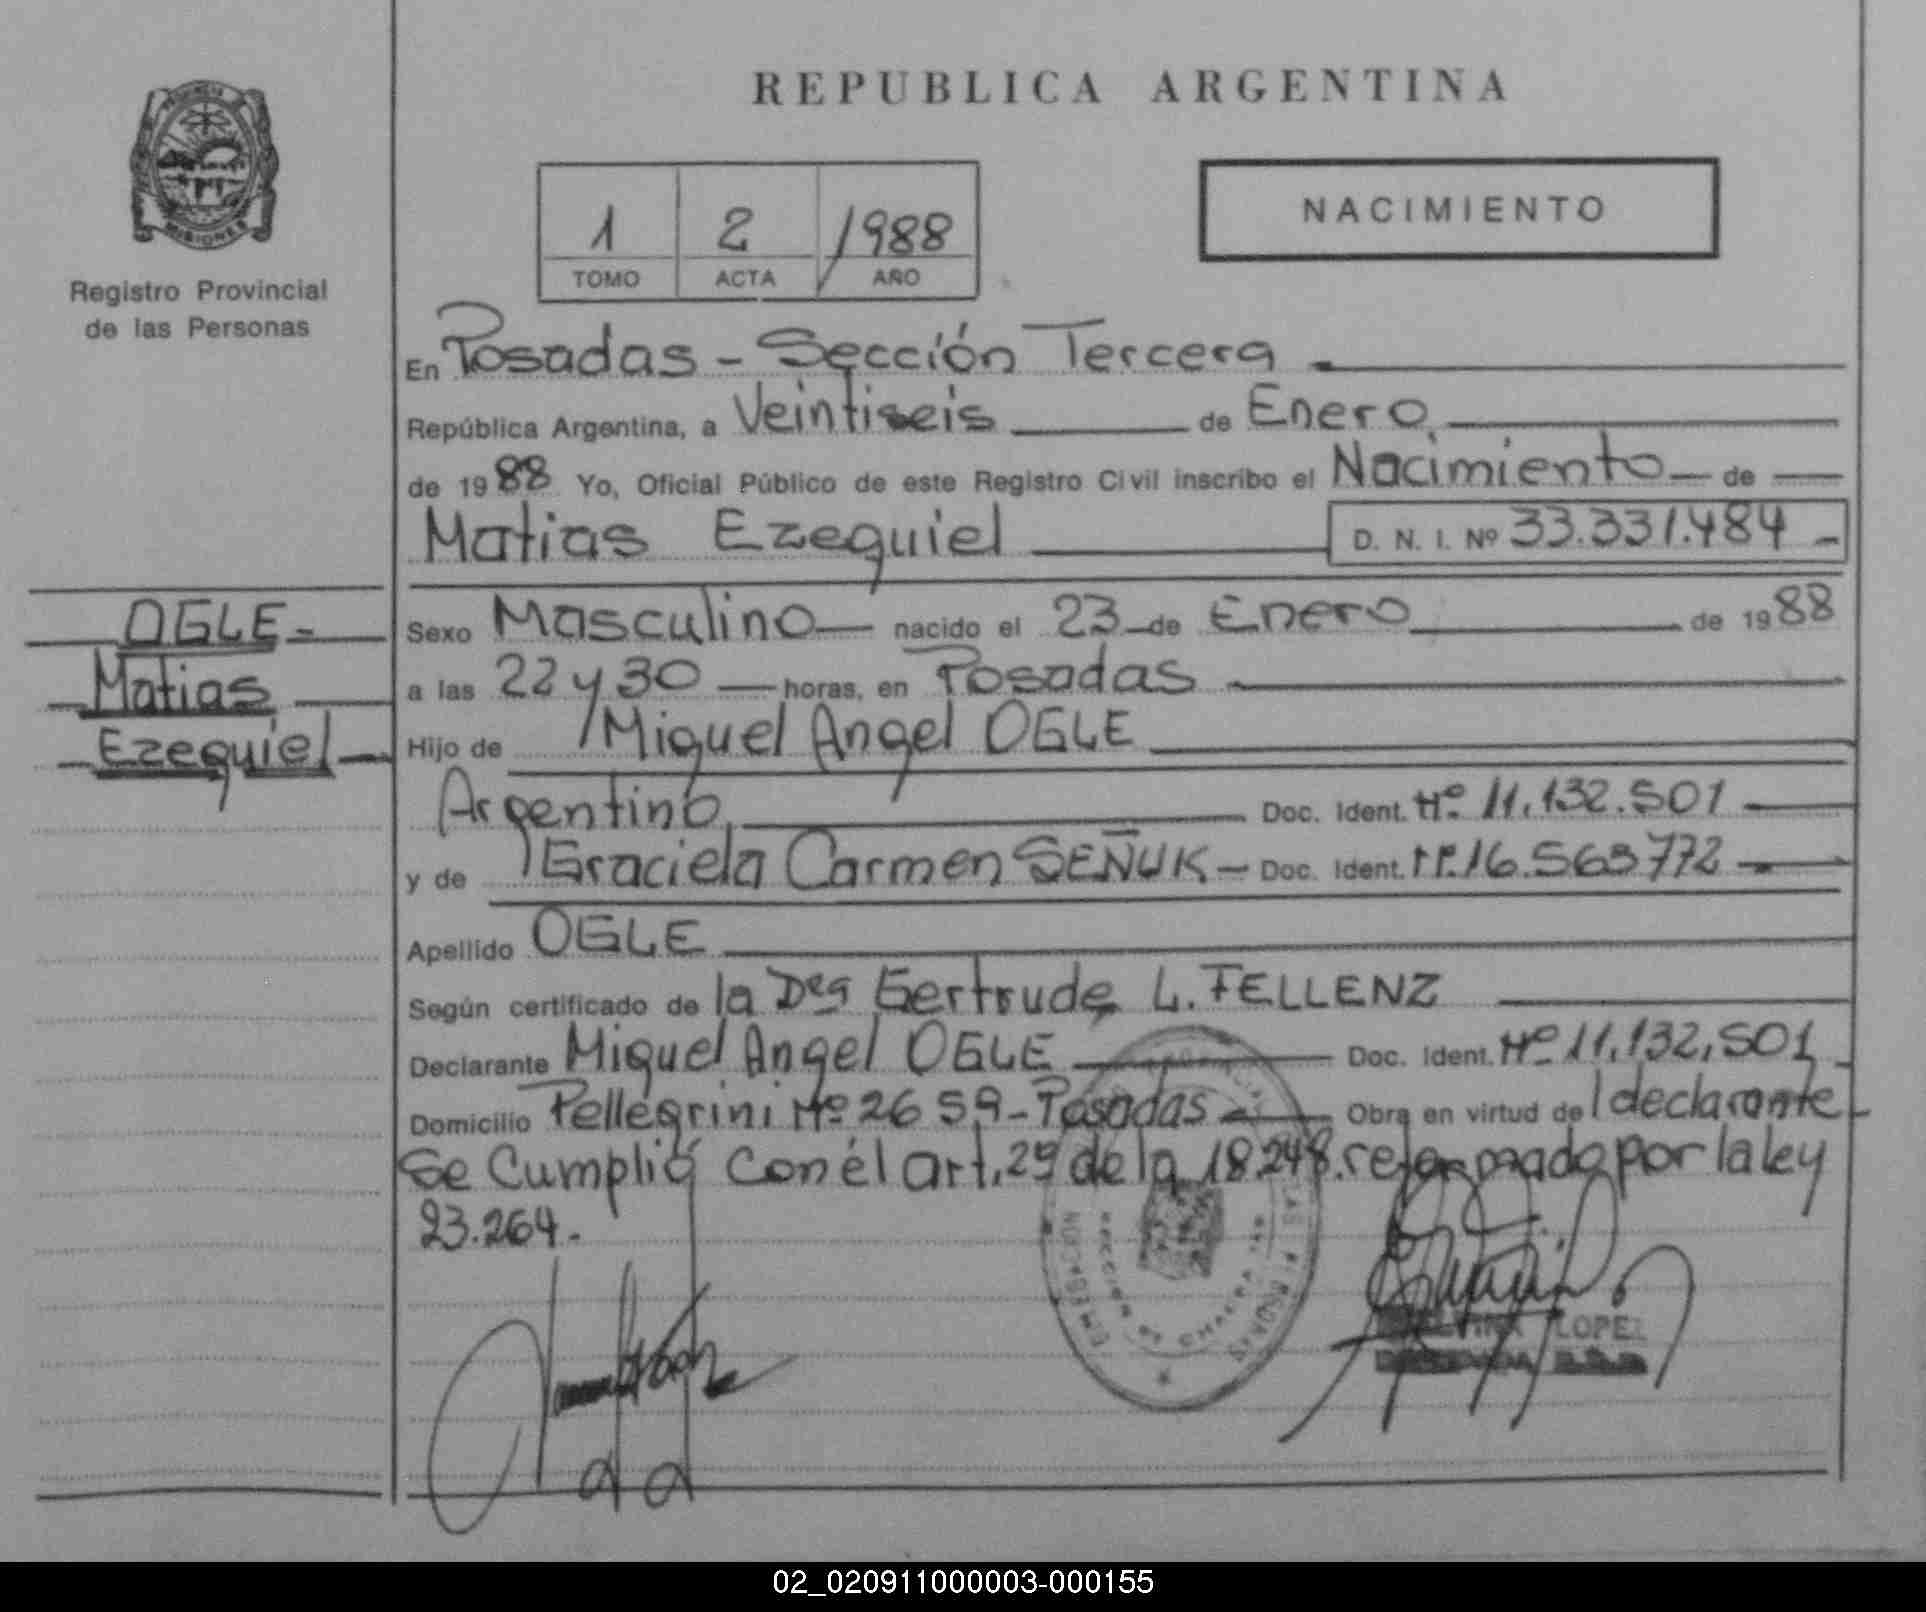 REPUBLICA ARGENTINA
PROVINCIA DE
MISIONES
Registro Provincial
de las Personas
1 2 1988
TOMO ACTA AÑO
NACIMIENTO
En Posadas - Sección Tercera
República Argentina, a Veintiseis de Enero
de 1988 Yo, Oficial Público de este Registro Civil inscribo el Nacimiento de
Matias Ezequiel D. N. I. Nº 33.331.484 -
OGLE -
Matias
Ezequiel
Sexo Masculino nacido el 23 de Enero de 1988
a las 22 y 30 horas, en Posadas
Hijo de Miguel Angel OGLE
Argentino Doc. Ident. Nº 11.132.501
y de Graciela Carmen SEÑUK - Doc. Ident. Nº 16.563772
Apellido OGLE
Según certificado de la Dra Gertrude L. FELLENZ
Declarante Miguel Angel OGLE Doc. Ident. Nº 11,132,501
Domicilio Pellegrini Nº 2659 - Posadas Obra en virtud de declarante
Se Cumplió con el art. 2º de la 18.248. reformado por la ley
23.264.-
LOPEZ
02_020911000003-000155